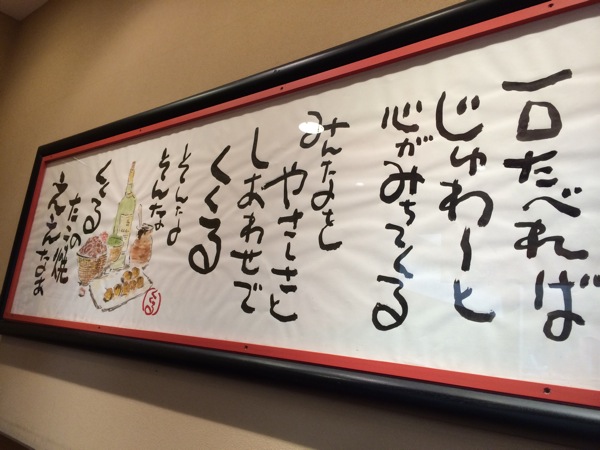 一口たべれば
じゅわーと
心がみちてくる
みんなを
やさしさと
しあわせで
くくる
そんな
そんな
くくる
たこ焼
ええなあ
くくる